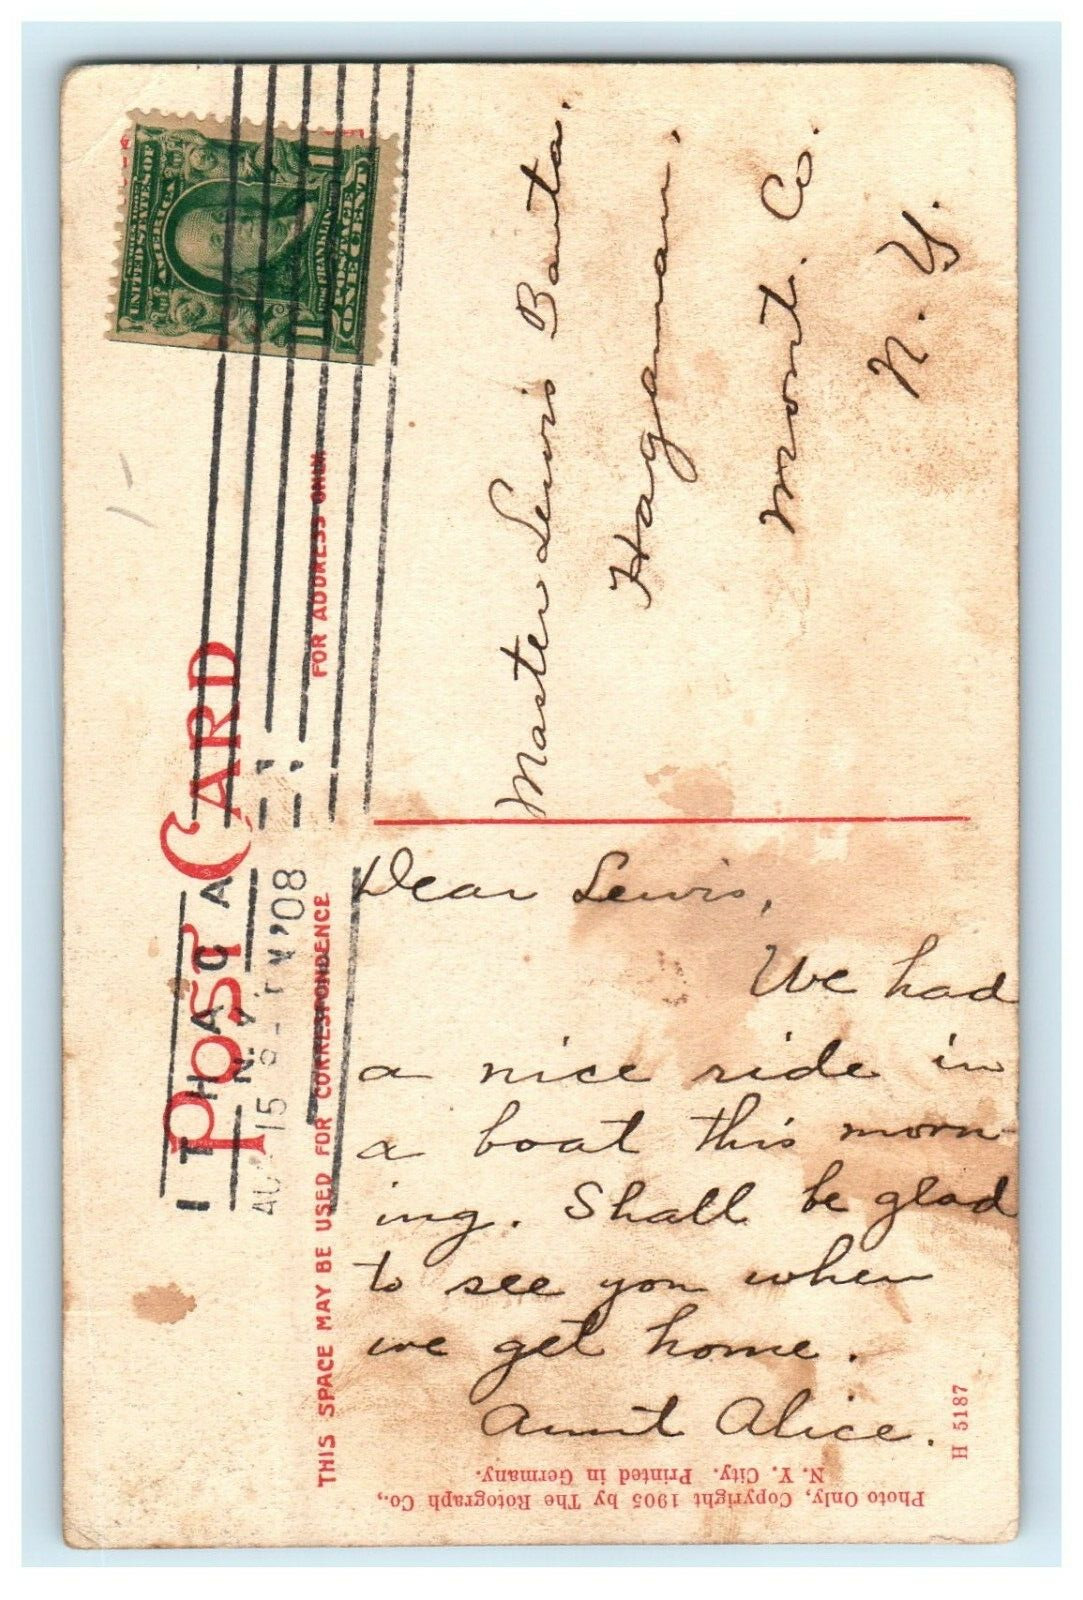 POST CARD
THIS SPACE MAY BE USED FOR CORRESPONDENCE
FOR ADDRESS ONLY
ITHACA
N.Y.
15
'08
UNITED STATES OF
AMERICA
FRANKLIN
POSTAGE
ONE CENT
1 1
Master Lewis Banta.
Hagaman.
Mont. Co.
N. Y.
Dear Lewis,
We had
a nice ride in
a boat this morn-
ing. Shall be glad
to see you when
we get home.
Aunt Alice.
H 5187
Photo Only, Copyright 1905 by The Rotograph Co.,
N. Y. City. Printed in Germany.